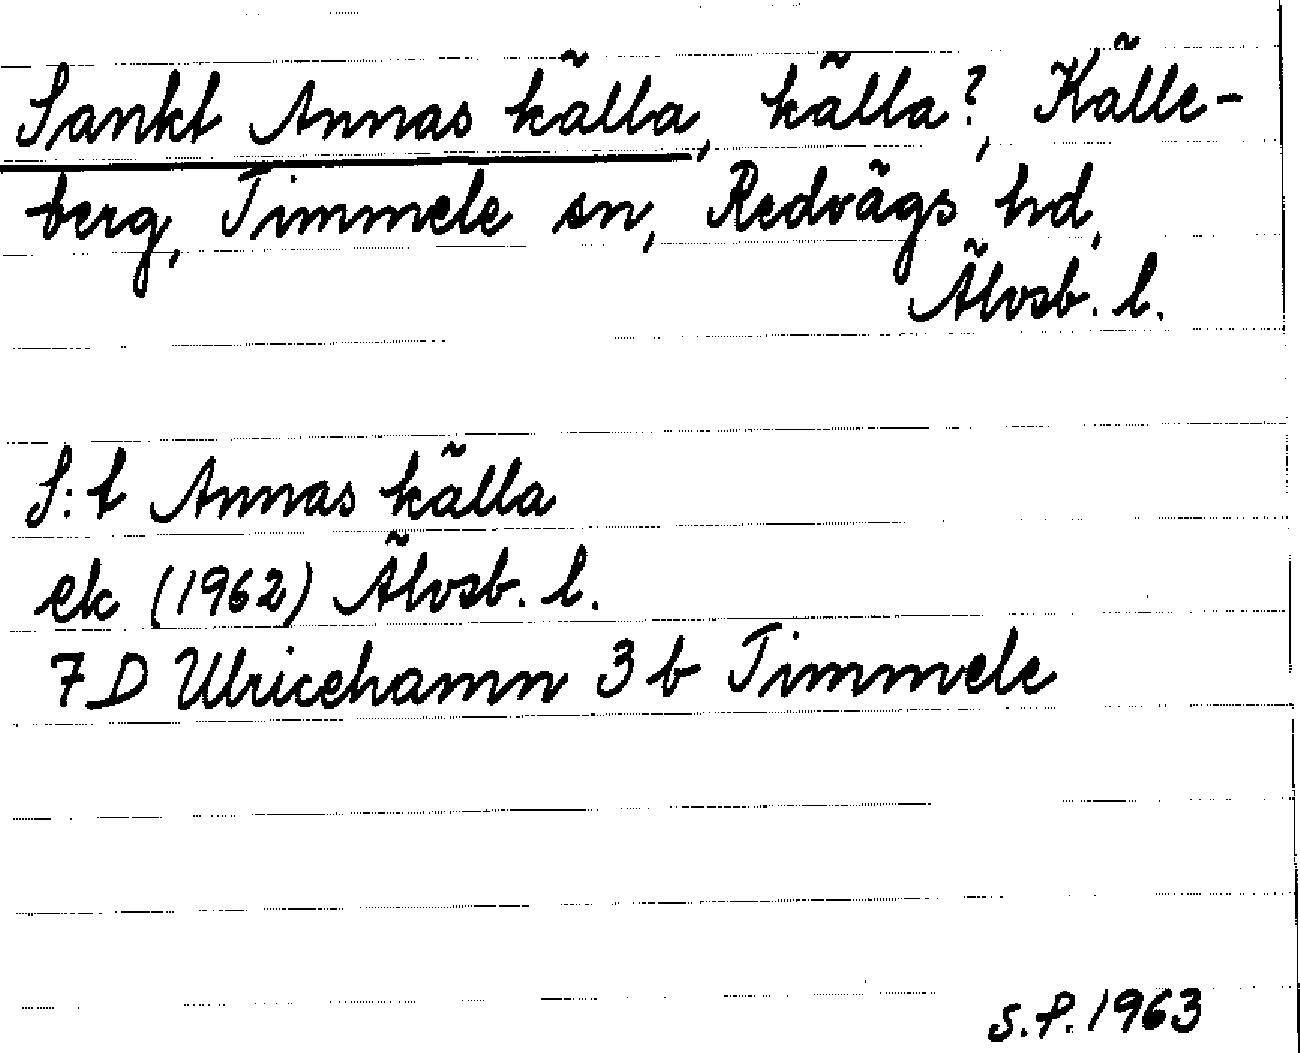 Sankt Annas källa, källa?, Källe-
berg, Timmele sn, Redvägs hd,
Älvsb. l.
S:t Annas källa
ek (1962) Älvsb. l.
7 D Ulricehamn 3 b Timmele
S.P. 1963